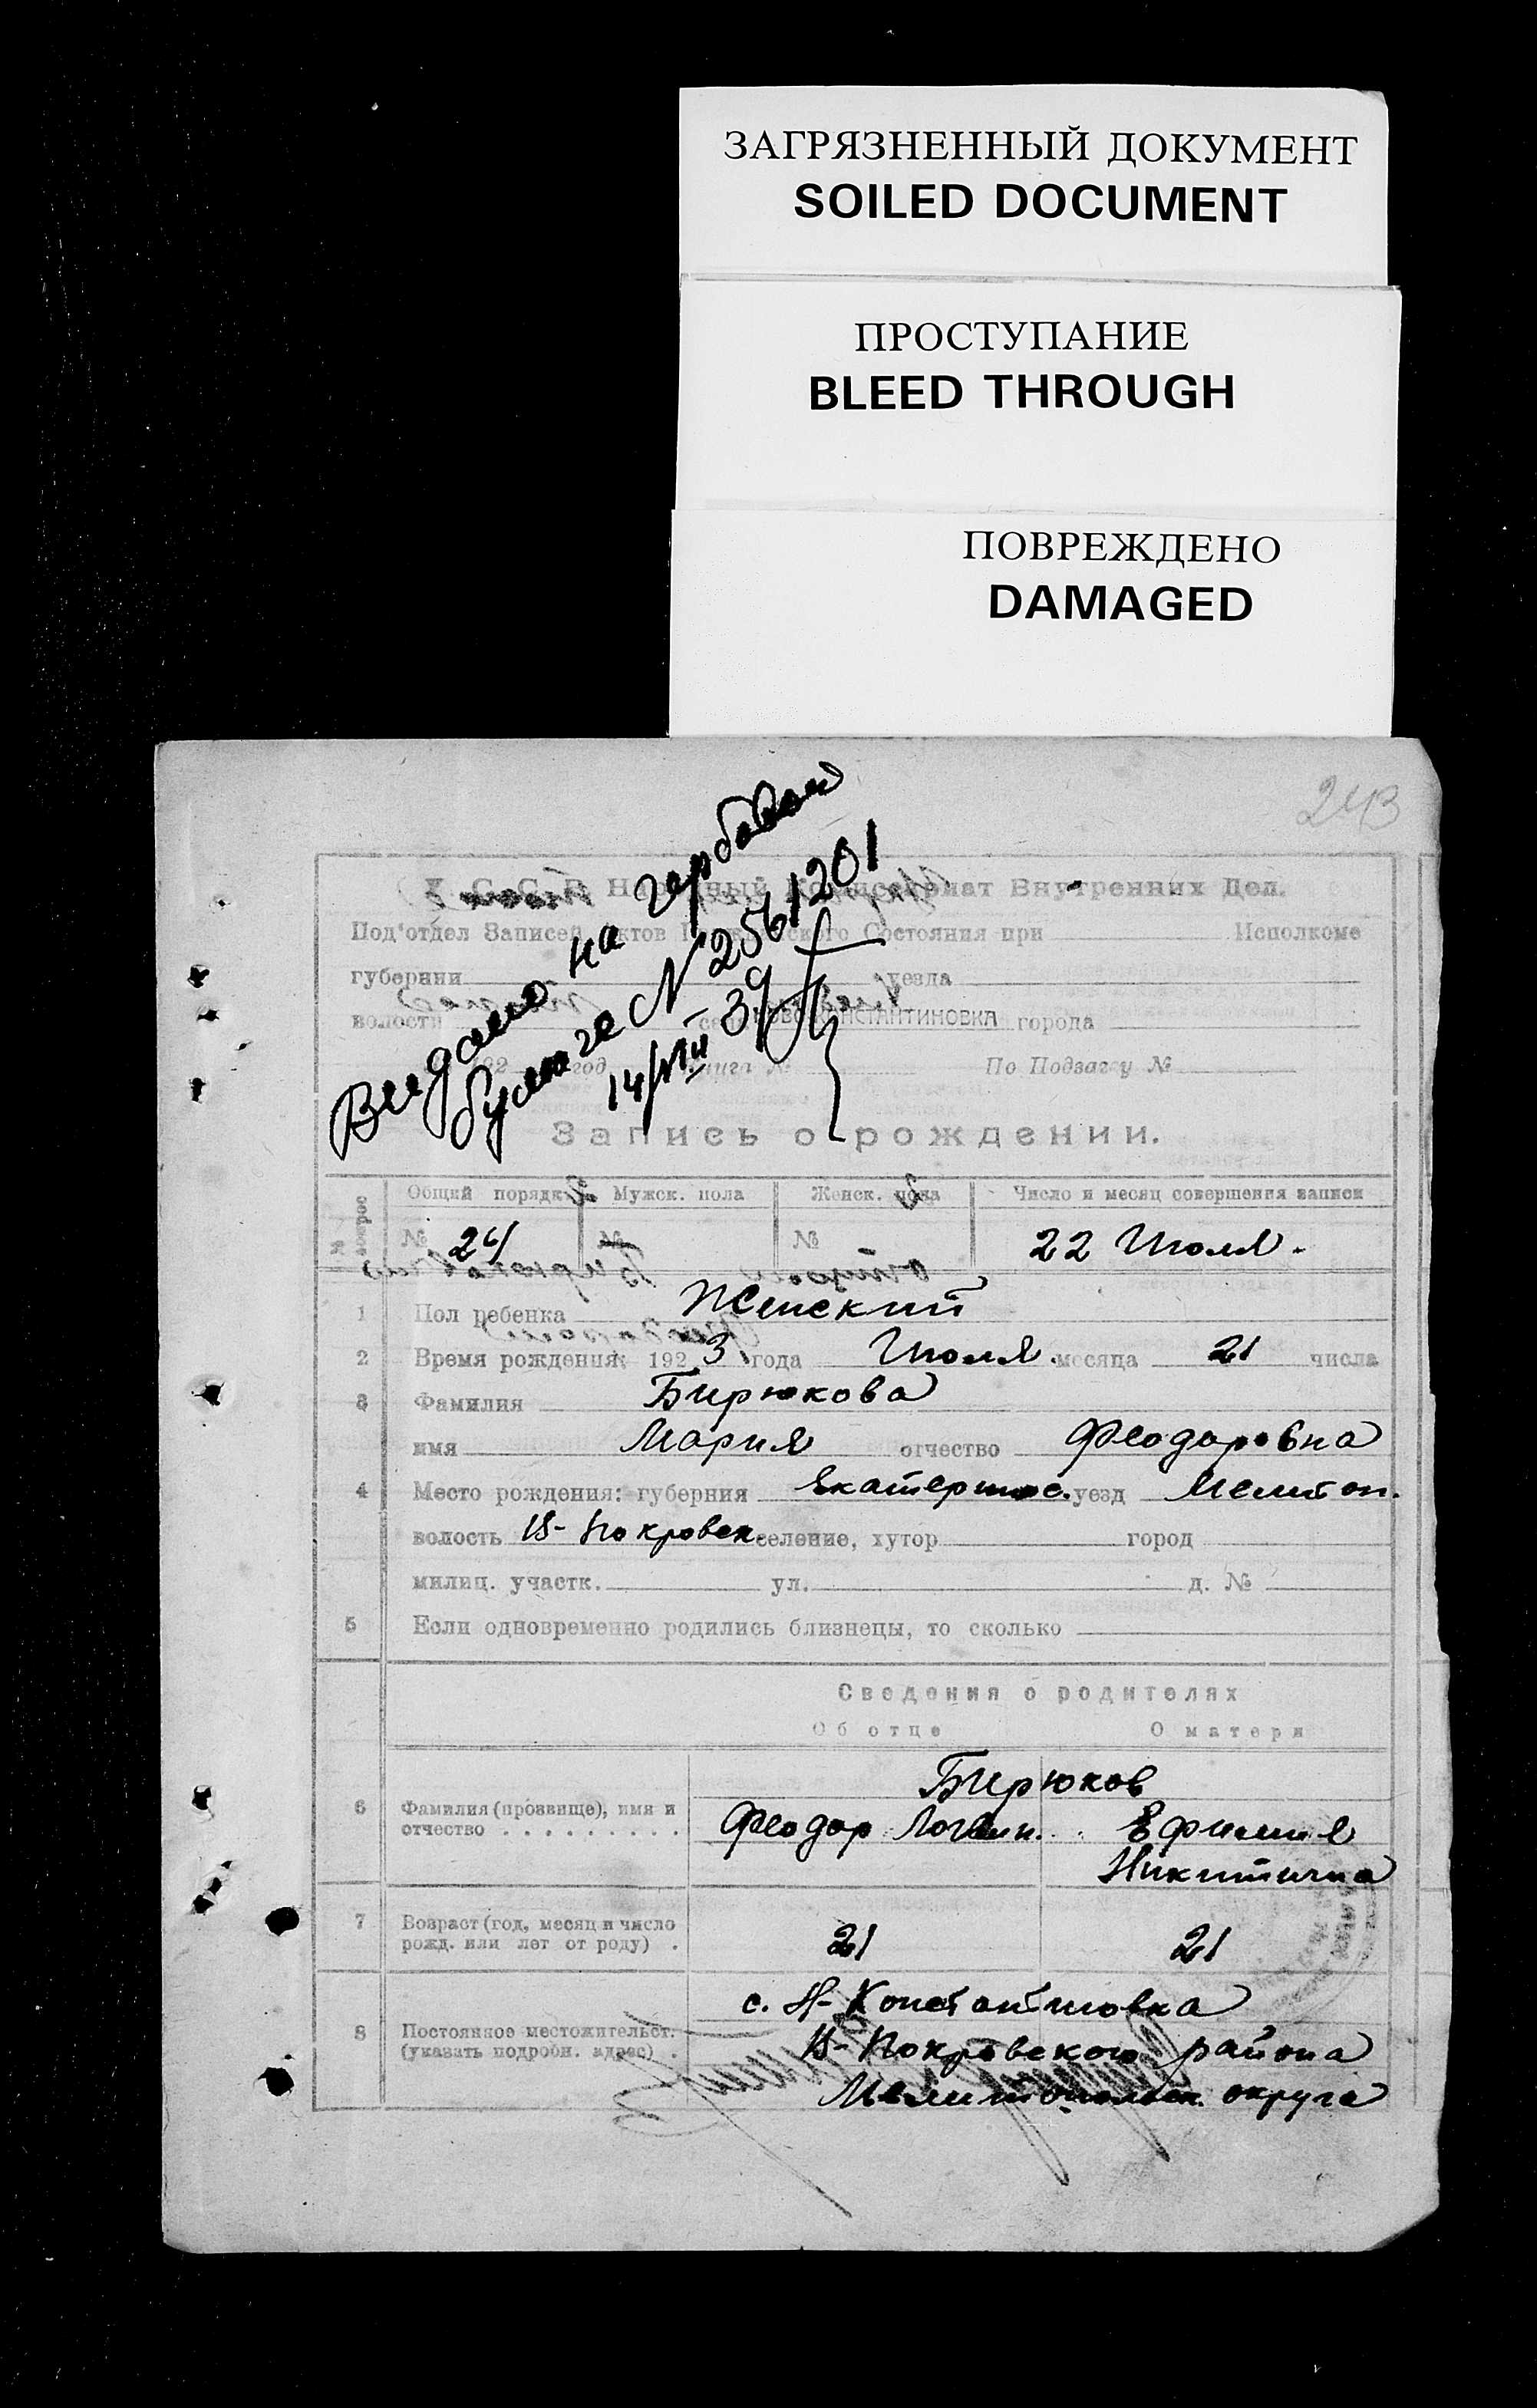 ЗАГРЯЗНЕННЫЙ ДОКУМЕНТ
SOILED DOCUMENT
ПРОСТУПАНИЕ
BLEED THROUGH
ПОВРЕЖДЕНО
DAMAGED
243
Выдано на гербовой
бумаге № 2561201
14/VIII 39
У. С. С. Р. Народный Комиссариат Внутренних Дел.
Под'отдел Записей Актов Гражданского Состояния при Исполкоме
губернии уезда
волости села НОВОКОНСТАНТИНОВКА города
192 год Книга № По Подзагсу №
Запись о рождении.
Общий порядк. Мужск. пола Женск. пола Число и месяц совершения записи
№ вопрос № 24 № № 22 Июля.
1 Пол ребенка Женский
2 Время рождения: 192 3 года Июля месяца 21 числа
3 Фамилия Бирюкова
имя Мария отчество Феодоровна
4 Место рождения: губерния Екатеринос. уезд Мелитоп.
волость Н-Покровск. селение, хутор город
милиц. участк. ул. д. №
5 Если одновременно родились близнецы, то сколько
Сведения о родителях
Об отце О матери
Бирюков
6 Фамилия (прозвище), имя и отчество Феодор Логвин. Ефимия
Никитична
7 Возраст (год, месяц и число
рожд. или лет от роду) 21 21
с. Н-Константиновка
8 Постоянное местожительст. Н-Покровского района
(указать подробн. адрес) Мелитопольск. округа